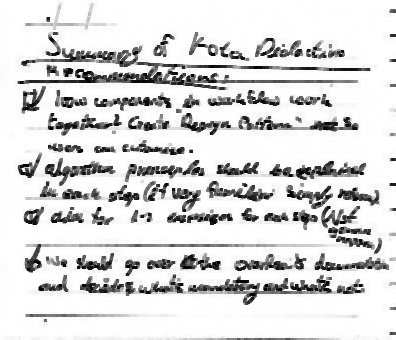 Summary of Kota Didactive
Recommendations:
how components in workflow work
together? Create "Design Pattern" not so
users can customize.
algorithm principles should be explained
in each step (if very familiar simply
aim for 1-2 exercises for each step (Not
We should go over the overleaf's documentation
and decide what's mandatory and what's not